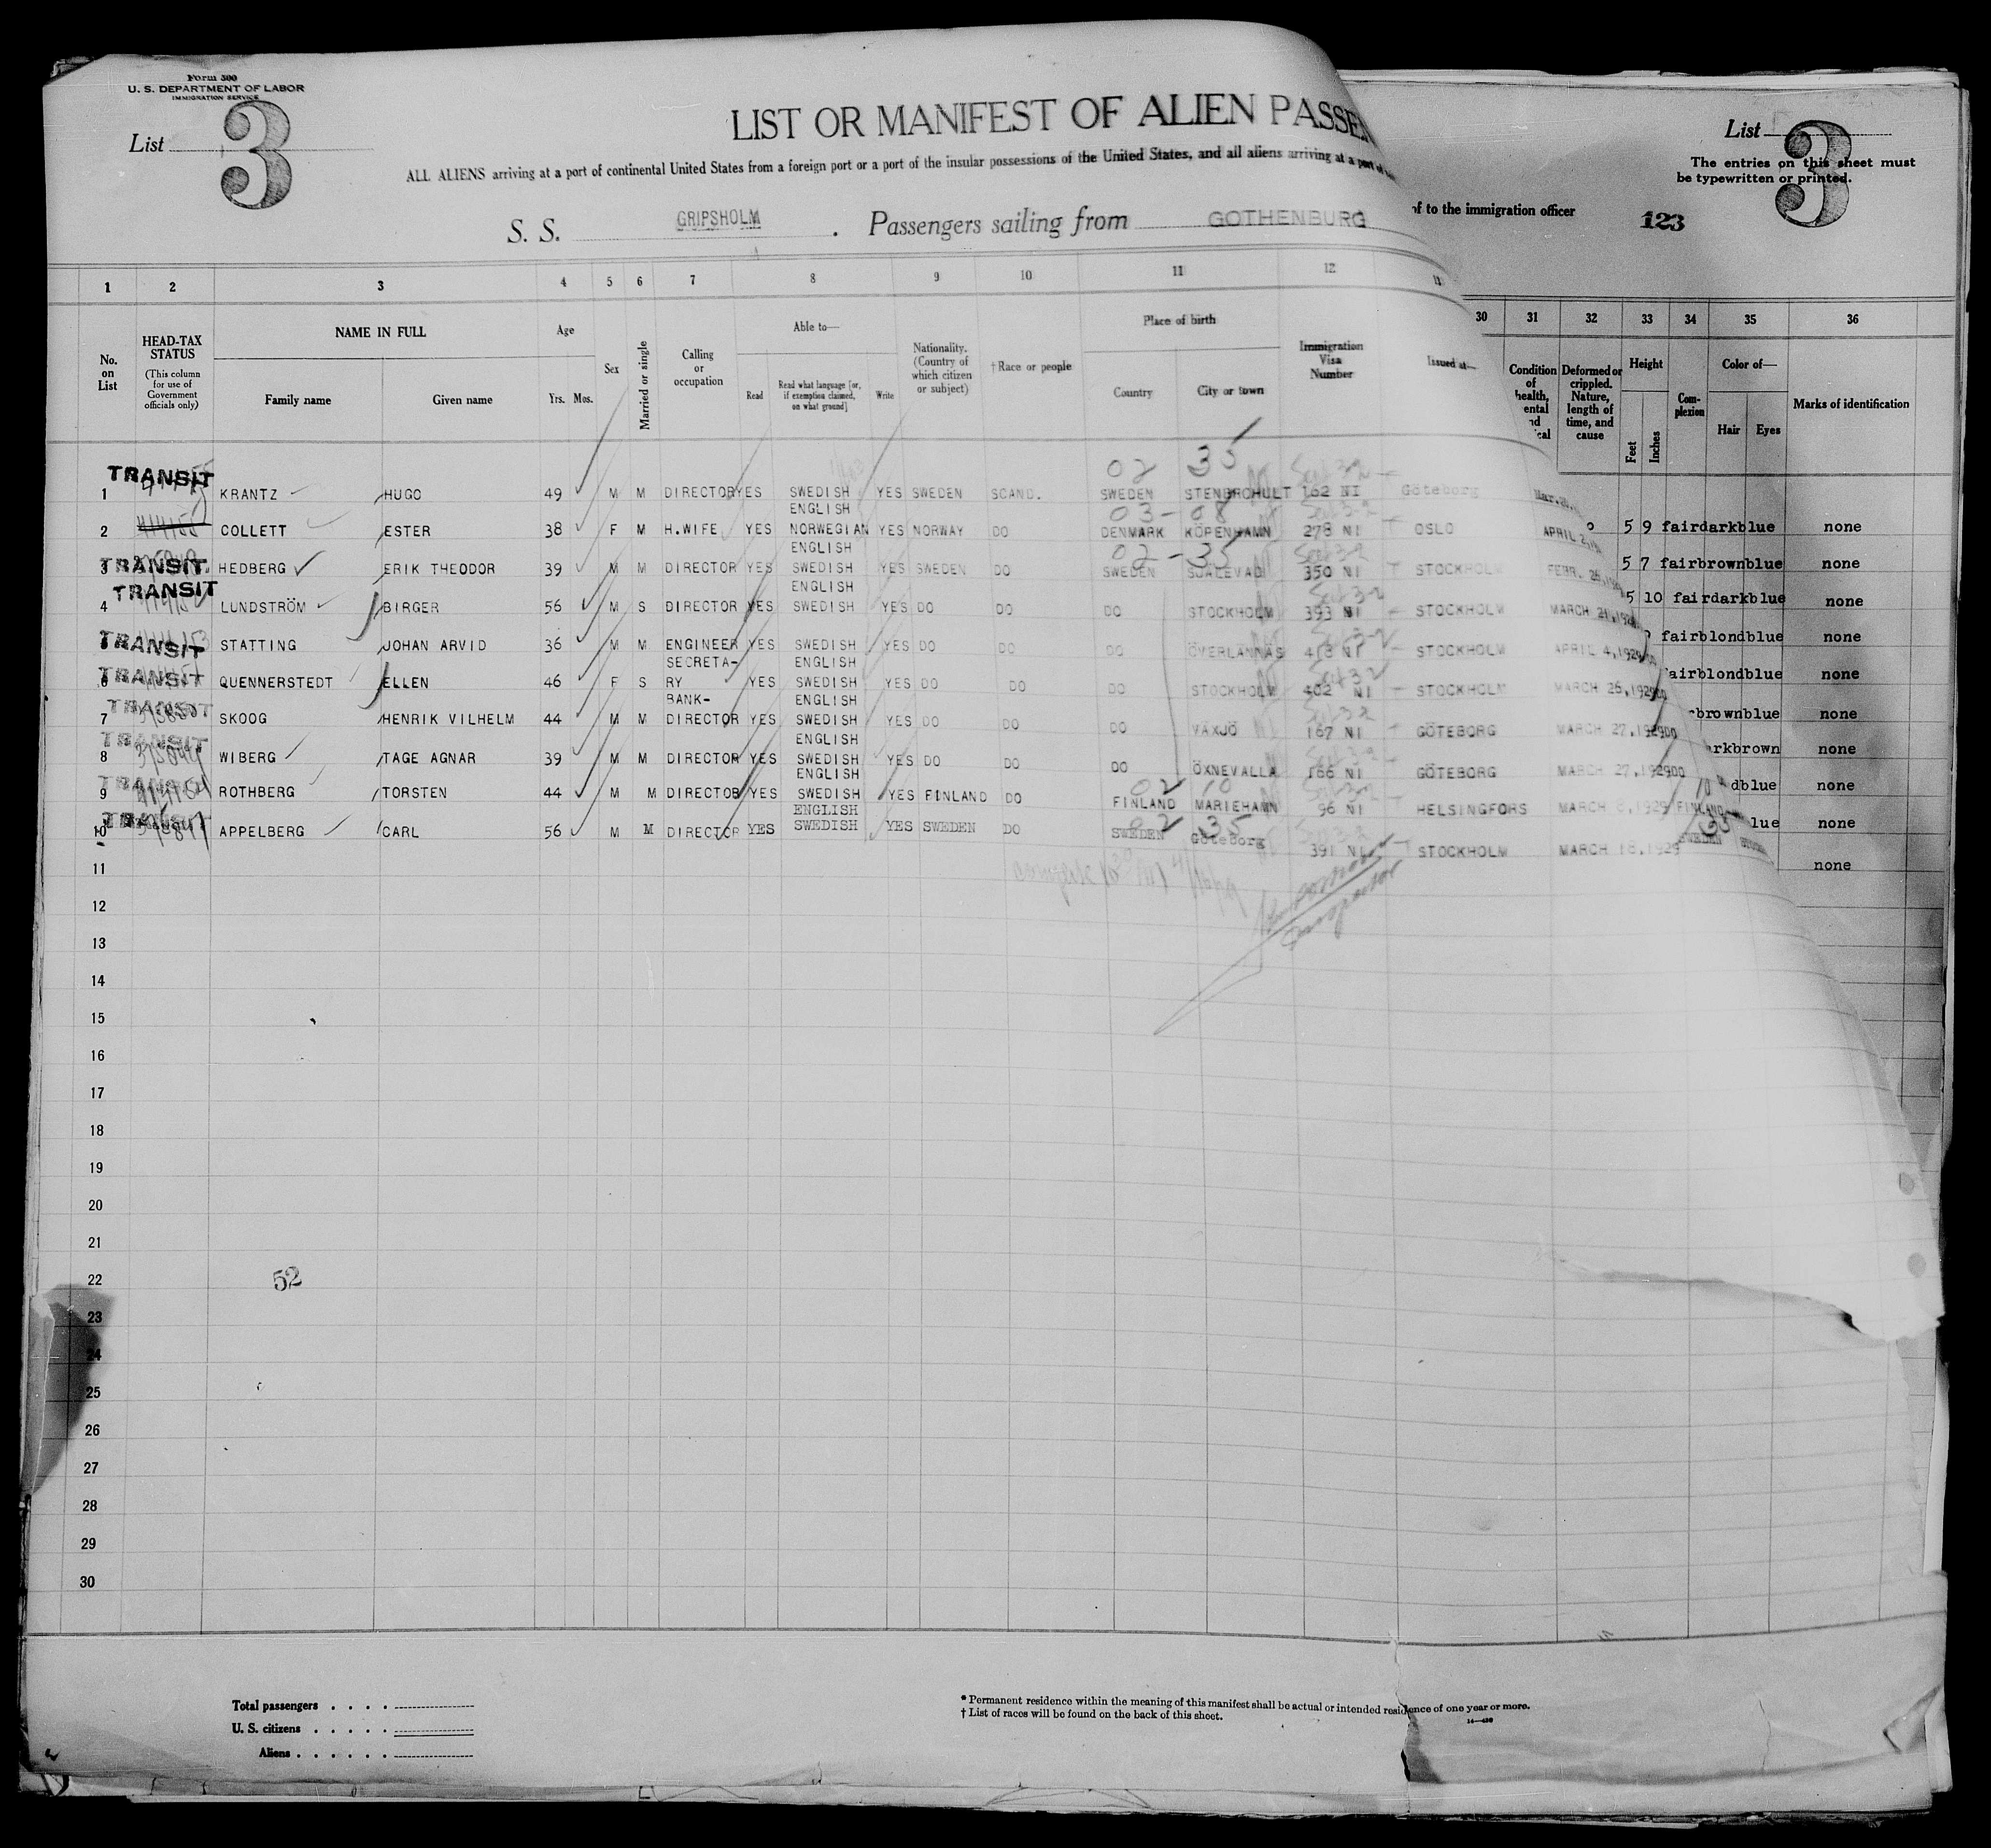 Form 500
U. S. DEPARTMENT OF LABOR
IMMIGRATION SERVICE
List 3
LIST OR MANIFEST OF ALIEN PASSEN
ALL ALIENS arriving at a port of continental United States from a foreign port or a part of the insular possessions of the United States, and all aliens arriving at a port of
S. S. GRIPSHOLM . Passengers sailing from GOTHENBURG
List 3
The entries on this sheet must
be typewritten or printed.
of to the immigration officer 123
1 2 3 4 5 6 7 8 9 10 11 12 30 31 32 33 34 35 36
No. on List
HEAD-TAX STATUS
(This column for use of Government officials only)
NAME IN FULL
Family name Given name
Age
Yrs. Mos.
Sex
Married or single
Calling or occupation
Able to—
Read
Read what language [or, if exemption claimed, on what ground]
Write
Nationality. (Country of which citizen or subject)
†Race or people
Place of birth
Country City or town
Immigration Visa Number
Issued at—
Condition of health,
Deformed or crippled. Nature, length of time, and cause
Height
Feet Inches
Complexion
Color of—
Hair Eyes
Marks of identification
02 35
TRANSIT
1 KRANTZ HUGO 49 M M DIRECTOR YES SWEDISH YES SWEDEN SCAND. SWEDEN STENBROHULT 162 NI Göteborg
ENGLISH 03-08
2 COLLETT ESTER 38 F M H.WIFE YES NORWEGIAN YES NORWAY DO DENMARK KÖPENHAMN 278 NI OSLO APRIL 2, 5 9 fair dark blue none
ENGLISH 02-35
TRANSIT
3 HEDBERG ERIK THEODOR 39 M M DIRECTOR YES SWEDISH YES SWEDEN DO SWEDEN 350 NI STOCKHOLM FEBR. 5 7 fair brown blue none
TRANSIT ENGLISH
4 LUNDSTRÖM BIRGER 56 M S DIRECTOR YES SWEDISH YES DO DO DO STOCKHOLM 393 NI STOCKHOLM MARCH 5 10 fair dark blue none
TRANSIT
STATTING JOHAN ARVID 36 M M ENGINEER YES SWEDISH YES DO DO DO ÖVERLÄNNÄS 413 NI STOCKHOLM APRIL 4, 1929 fair blond blue none
SECRETA- ENGLISH
TRANSIT
6 QUENNERSTEDT ELLEN 46 F S RY YES SWEDISH YES DO DO DO STOCKHOLM 402 NI STOCKHOLM MARCH 26, 1929 airblond blue none
BANK- ENGLISH
TRANSIT
7 SKOOG HENRIK VILHELM 44 M M DIRECTOR YES SWEDISH YES DO DO DO VÄXJÖ 167 NI GÖTEBORG MARCH 27, 1929 DO brown blue none
TRANSIT ENGLISH
8 WIBERG TAGE AGNAR 39 M M DIRECTOR YES SWEDISH YES DO DO DO ÖXNEVALLA 166 NI GÖTEBORG MARCH 27, 1929 DO ark brown none
TRANSIT ENGLISH 02 10
9 ROTHBERG TORSTEN 44 M M DIRECTOR YES SWEDISH YES FINLAND DO FINLAND MARIEHAMN 96 NI HELSINGFORS MARCH 1929 FINLAND d blue none
TRANSIT ENGLISH 02 35
10 APPELBERG CARL 56 M M DIRECTOR YES SWEDISH YES SWEDEN DO SWEDEN Göteborg 391 NI STOCKHOLM MARCH 18, 1929 SWEDEN lue none
11 none
12
13
14
15
16
17
18
19
20
21
22 52
23
24
25
26
27
28
29
30
Total passengers . . . .
U. S. citizens . . . . .
Aliens . . . . . .
* Permanent residence within the meaning of this manifest shall be actual or intended residence of one year or more.
† List of races will be found on the back of this sheet.